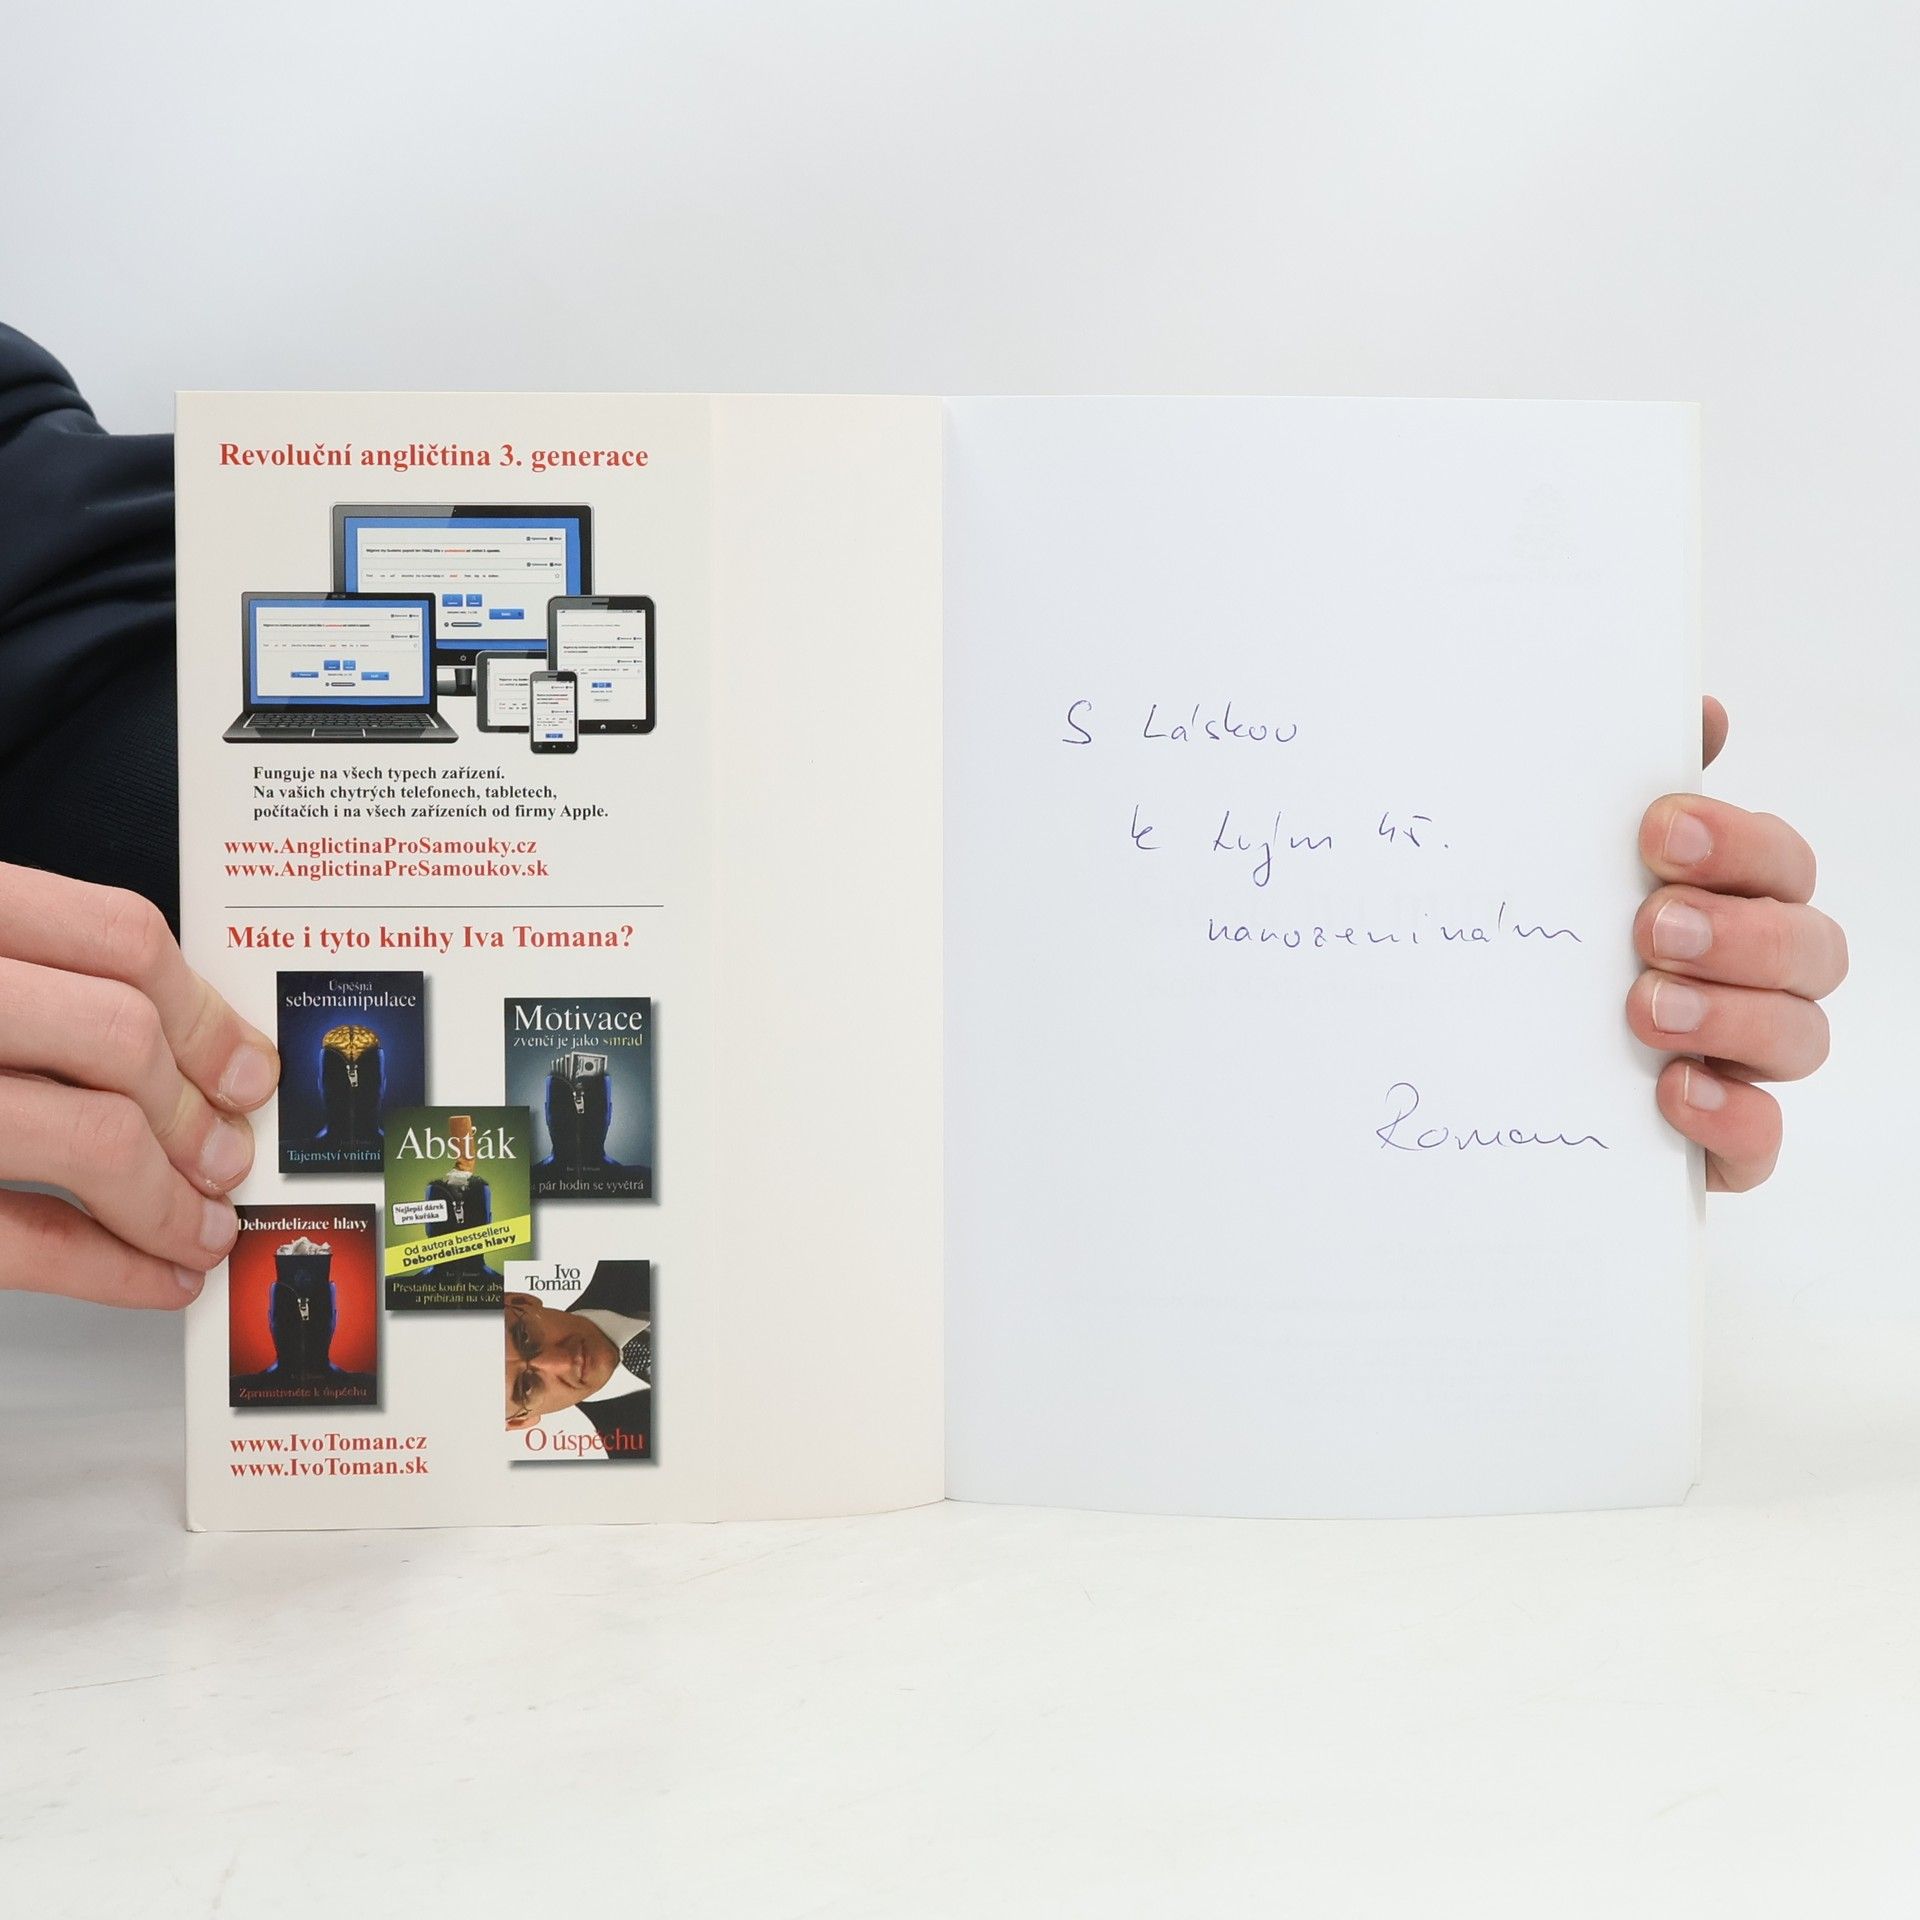 Revoluční angličtina 3. generace
Funguje na všech typech zařízení.
Na vašich chytrých telefonech, tabletech,
počítačích i na všech zařízeních od firmy Apple.
www.AnglictinaProSamouky.cz
www.AnglictinaPreSamoukov.sk
Máte i tyto knihy Iva Tomana?
Úspěšná
sebemanipulace
Tajemství vnitřní
Motivace
zvenčí je jako smrad
pár hodin se vyvětrá
Absťák
Nejlepší dárek
pro kuřáka
Od autora bestselleru
Debordelizace hlavy
Přestaňte kouřit bez abs
a přibírání na váze
Debordelizace hlavy
Zprimitivněte k úspěchu
Ivo
Toman
O úspěchu
www.IvoToman.cz
www.IvoToman.sk
S Láskou
k tvým 45.
narozeninám
Roman